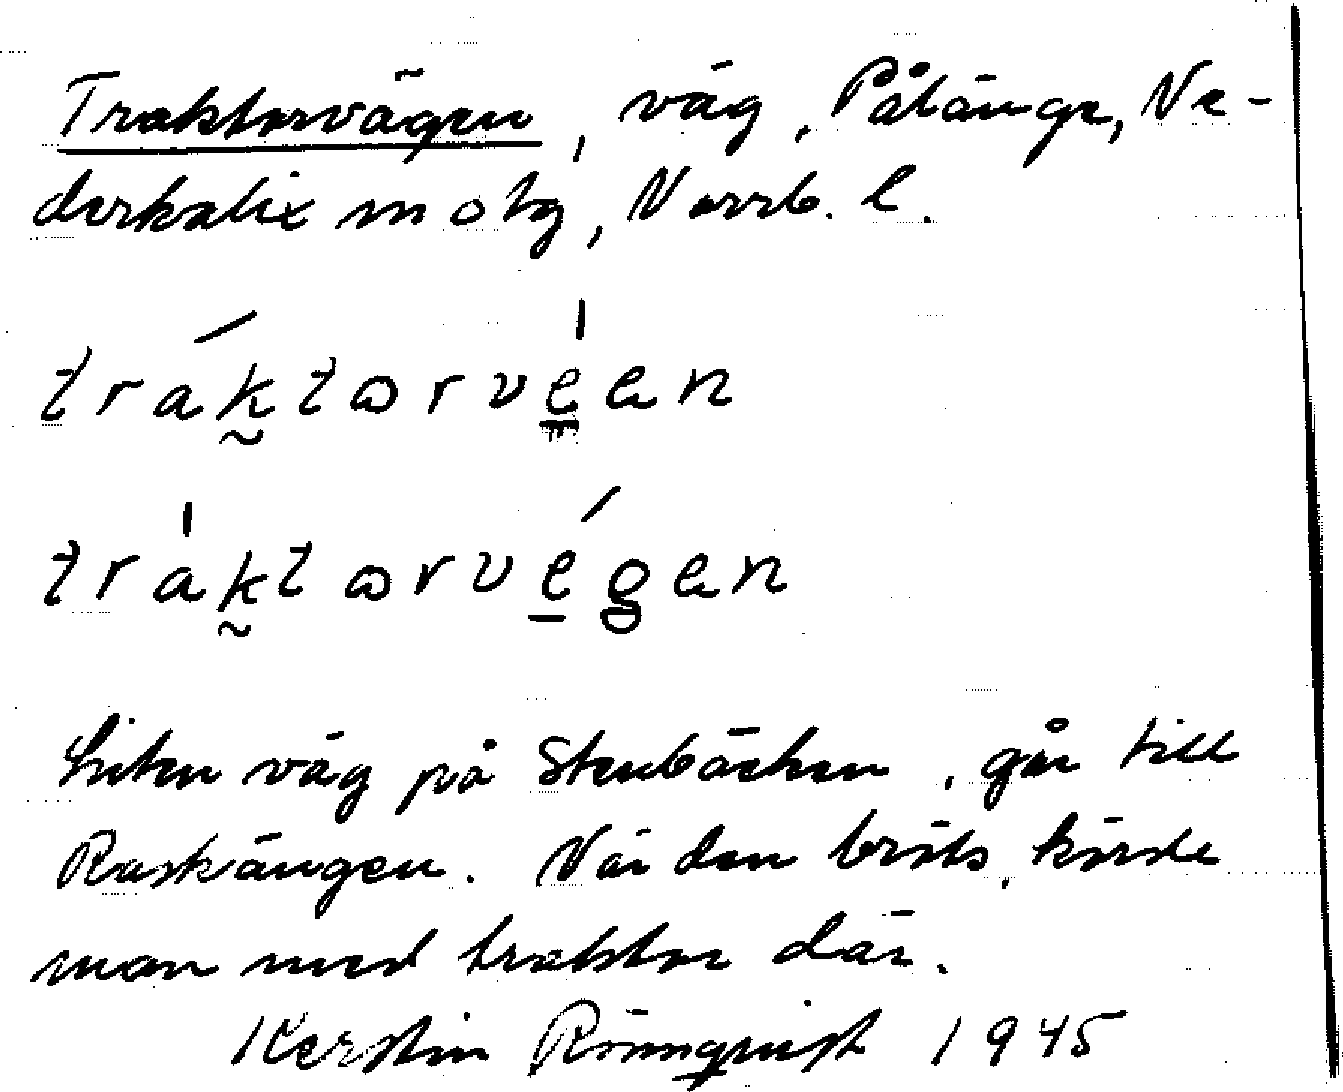 Traktorvägen, väg, Pålänge, Ne-
derkalix m o tg, Norrb. l.
traktorveen
traktorvegen
Liten väg på Stenbäcken, går till
Raskängen. När den bröts, körde
man med traktor där.
Kerstin Rönnqvist 1945